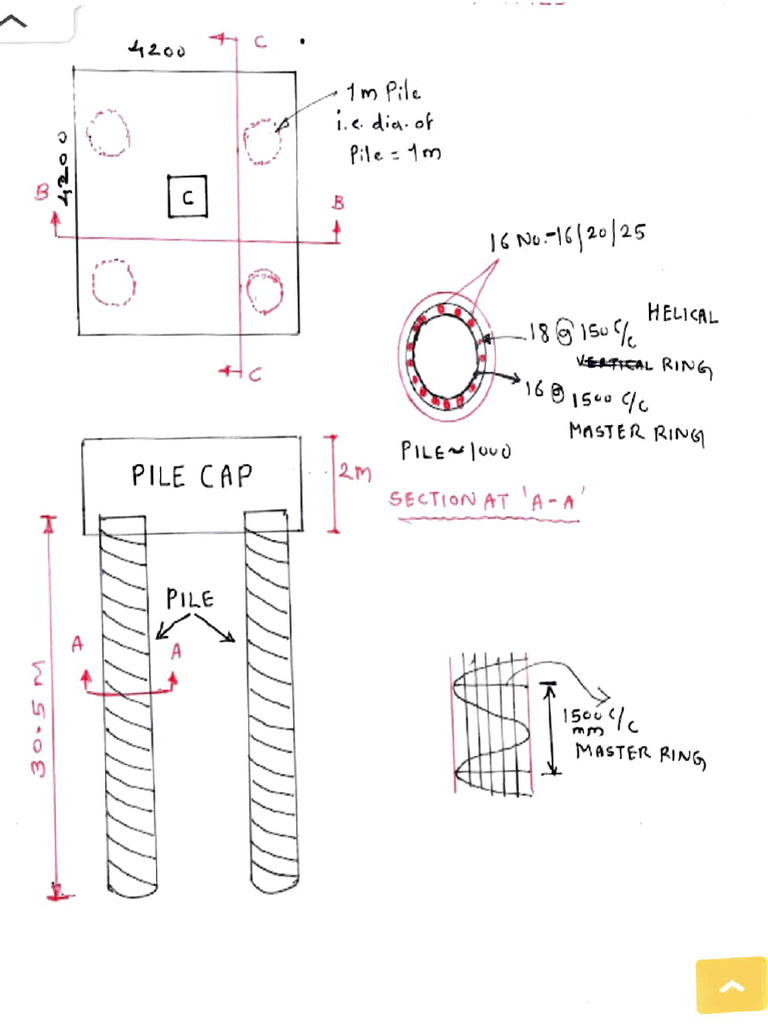 4200
C
4200
1m Pile
i.e. dia. of
Pile = 1m
B
C
B
C
16 No.-16/20/25
HELICAL
18 @ 150 C/C
VERTICAL RING
16 @ 1500 C/C
MASTER RING
PILE ~ 1000
SECTION AT 'A-A'
PILE CAP
2M
PILE
A
A
30.5 M
1500 C/C
mm
MASTER RING